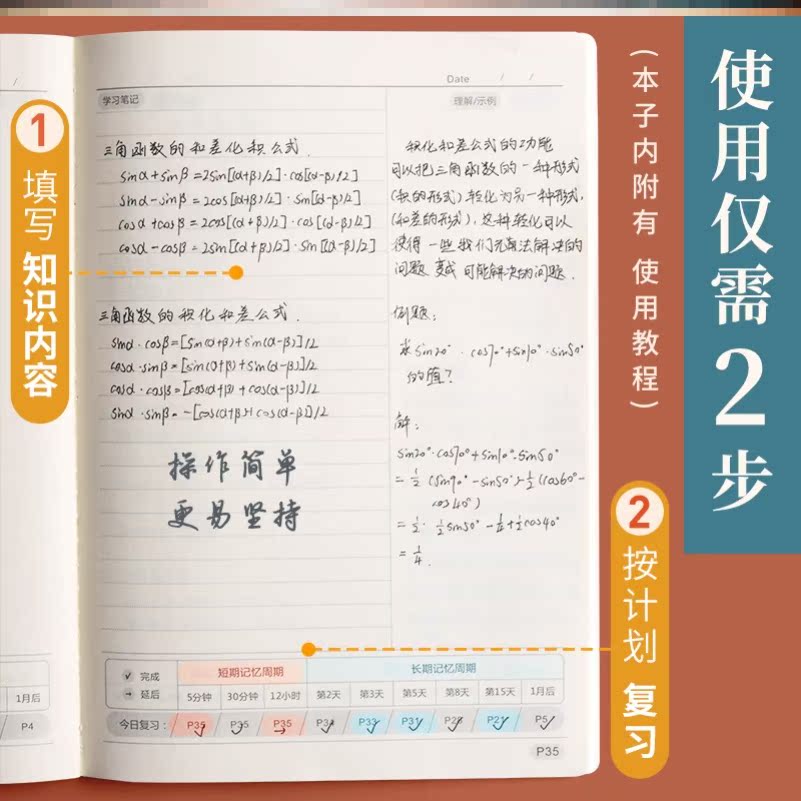 使用仅需2步
(本子内附有 使用教程)
1
填写 知识内容
2
按计划 复习
Date / /
学习笔记
理解/示例
三角函数的和差化积公式.
sinα+sinβ=2sin[(α+β)/2]·cos[(α-β)/2]
sinα-sinβ=2cos[(α+β)/2]·sin[(α-β)/2]
cosα+cosβ=2cos[(α+β)/2]·cos[(α-β)/2]
cosα-cosβ=2sin[(α+β)/2]·sin[(α-β)/2]
三角函数的积化和差公式.
sinα·cosβ=[sin(α+β)+sin(α-β)]/2
cosα·sinβ=[sin(α+β)+sin(α-β)]/2
cosα·cosβ=[cos(α+β)+cos(α-β)]/2
sinα·sinβ=-[cos(α+β)+cos(α-β)]/2
操作简单
更易坚持
积化和差公式的功能
可以把三角函数的一种形式
(积的形式)转化为另一种形式.
(和差的形式),这种转化可以
使得一些我们无法解决的
问题变成可能解决的问题.
例题:
求sin20°·cos70°+sin10°·sin50°
的值?
解:
sin20°·cos70°+sin10°·sin50°
=½(sin90°-sin50°)-½(cos60°-
cos40°)
=½·½sin50°-¼+½cos40°
=¼.
✓ 完成
短期记忆周期
长期记忆周期
→ 延后
5分钟
30分钟
12小时
第2天
第3天
第5天
第8天
第15天
1月后
今日复习:
P35
P35
P35
P34
P33
P31
P28
P21
P5
P35
/
1月后
P4